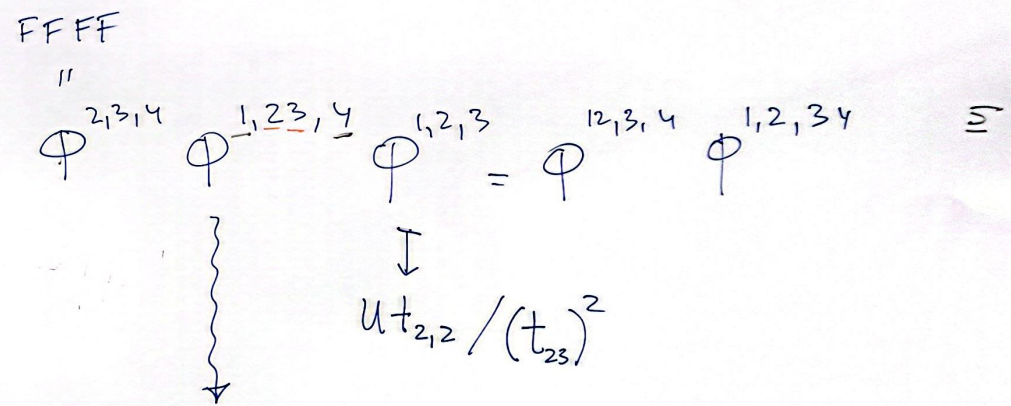 FFFF
"
Φ^{2,3,4} Φ^{1,23,4} Φ^{1,2,3} = Φ^{12,3,4} Φ^{1,2,34}
↧
Ut_{2,2}/(t_{23})^2